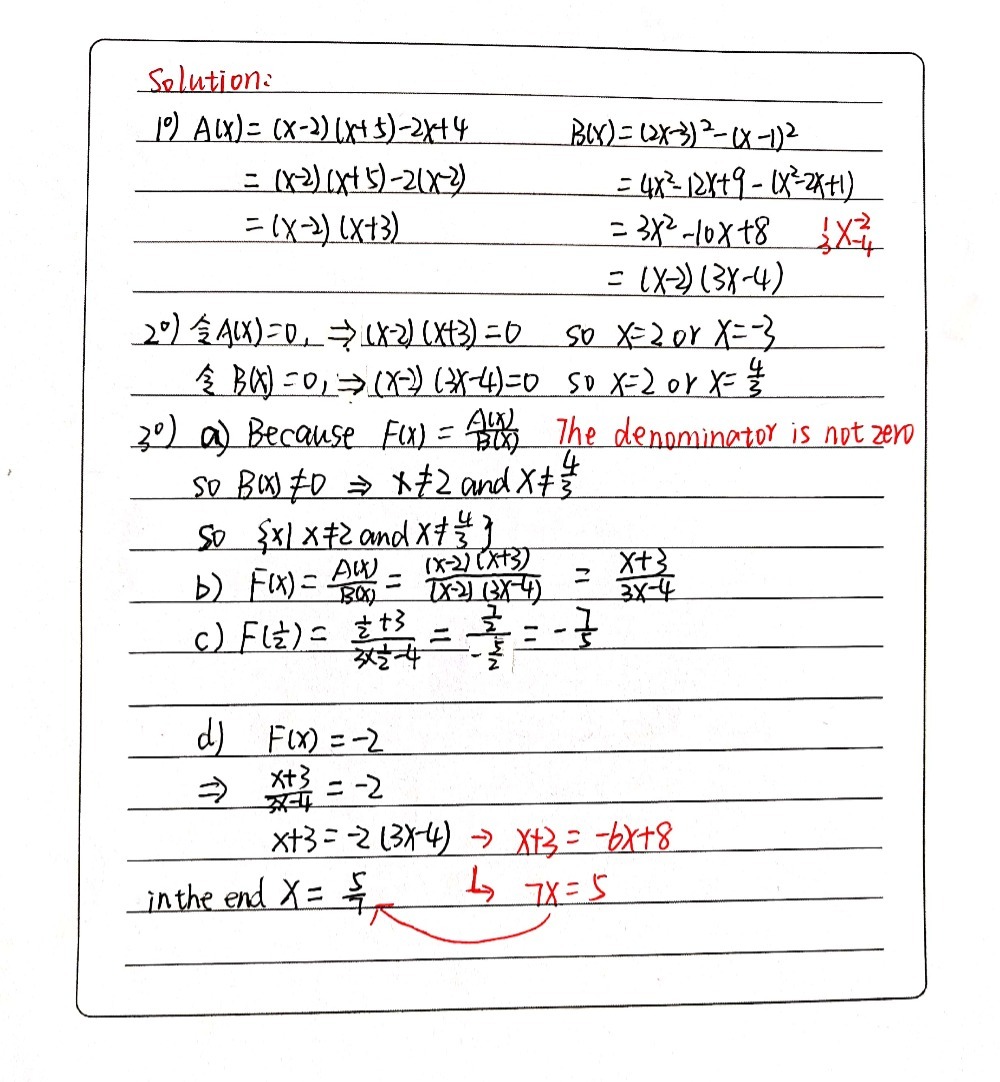 Solution:
1°) A(x) = (x-2)(x+5)-2x+4 B(x) = (2x-3)²-(x-1)²
= (x-2)(x+5)-2(x-2) = 4x²-12x+9-(x²-2x+1)
= (x-2)(x+3) = 3x²-10x+8 1 3 X -2 -4
= (x-2)(3x-4)
2°) 令A(x)=0, ⇒ (x-2)(x+3)=0 so x=2 or x=-3
令 B(x)=0, ⇒ (x-2)(3x-4)=0 so x=2 or x= 4/3
3°) a) Because F(x) = A(x)/B(x) The denominator is not zero
so B(x)≠0 ⇒ x≠2 and x≠ 4/3
so {x| x≠2 and x≠ 4/3}
b) F(x) = A(x)/B(x) = (x-2)(x+3)/(x-2)(3x-4) = x+3/3x-4
c) F(1/2) = 1/2+3/3×1/2-4 = 7/2/-5/2 = -7/5
d) F(x) = -2
⇒ x+3/3x-4 = -2
x+3 = -2(3x-4) → x+3 = -6x+8
in the end x = 5/7 ↳ 7x = 5